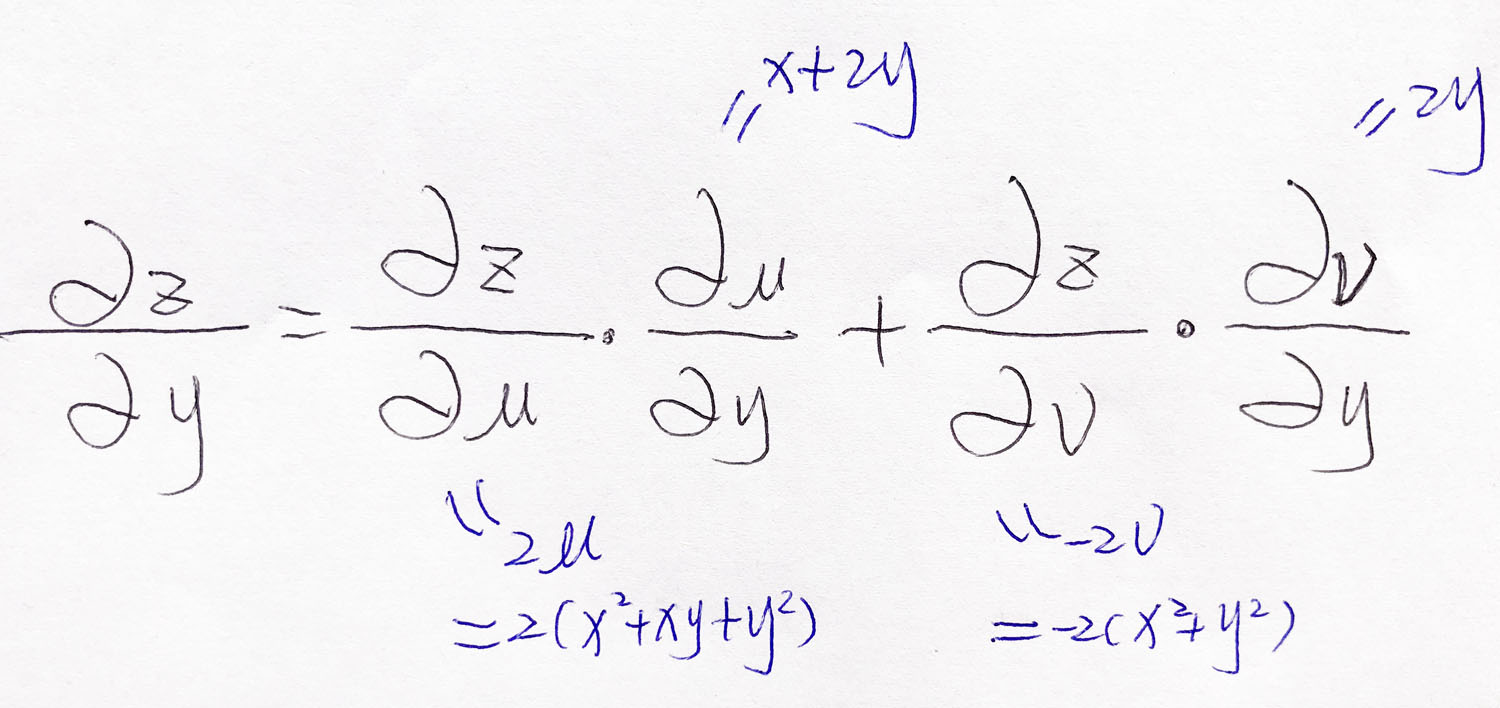 = x+2y = 2y
∂z/∂y = ∂z/∂u · ∂u/∂y + ∂z/∂v · ∂v/∂y
= 2u = -2v
= 2(x²+xy+y²) = -2(x²+y²)